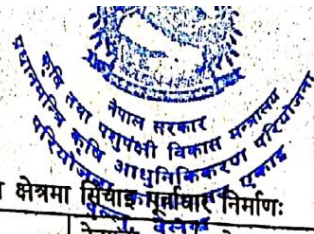 नेपाल सरकार
कृषि तथा पशुपंक्षी विकास मन्त्रालय
प्रधानमन्त्रि कृषि आधुनिकिकरण परियोजना
परियोजना कार्यान्वयन एकाइ
क्षेत्रमा सिंचाइ पूर्वाधार निर्माणः